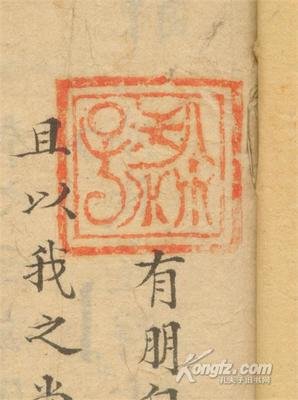 有朋自
且以我之
Kongfz.com
孔夫子旧书网